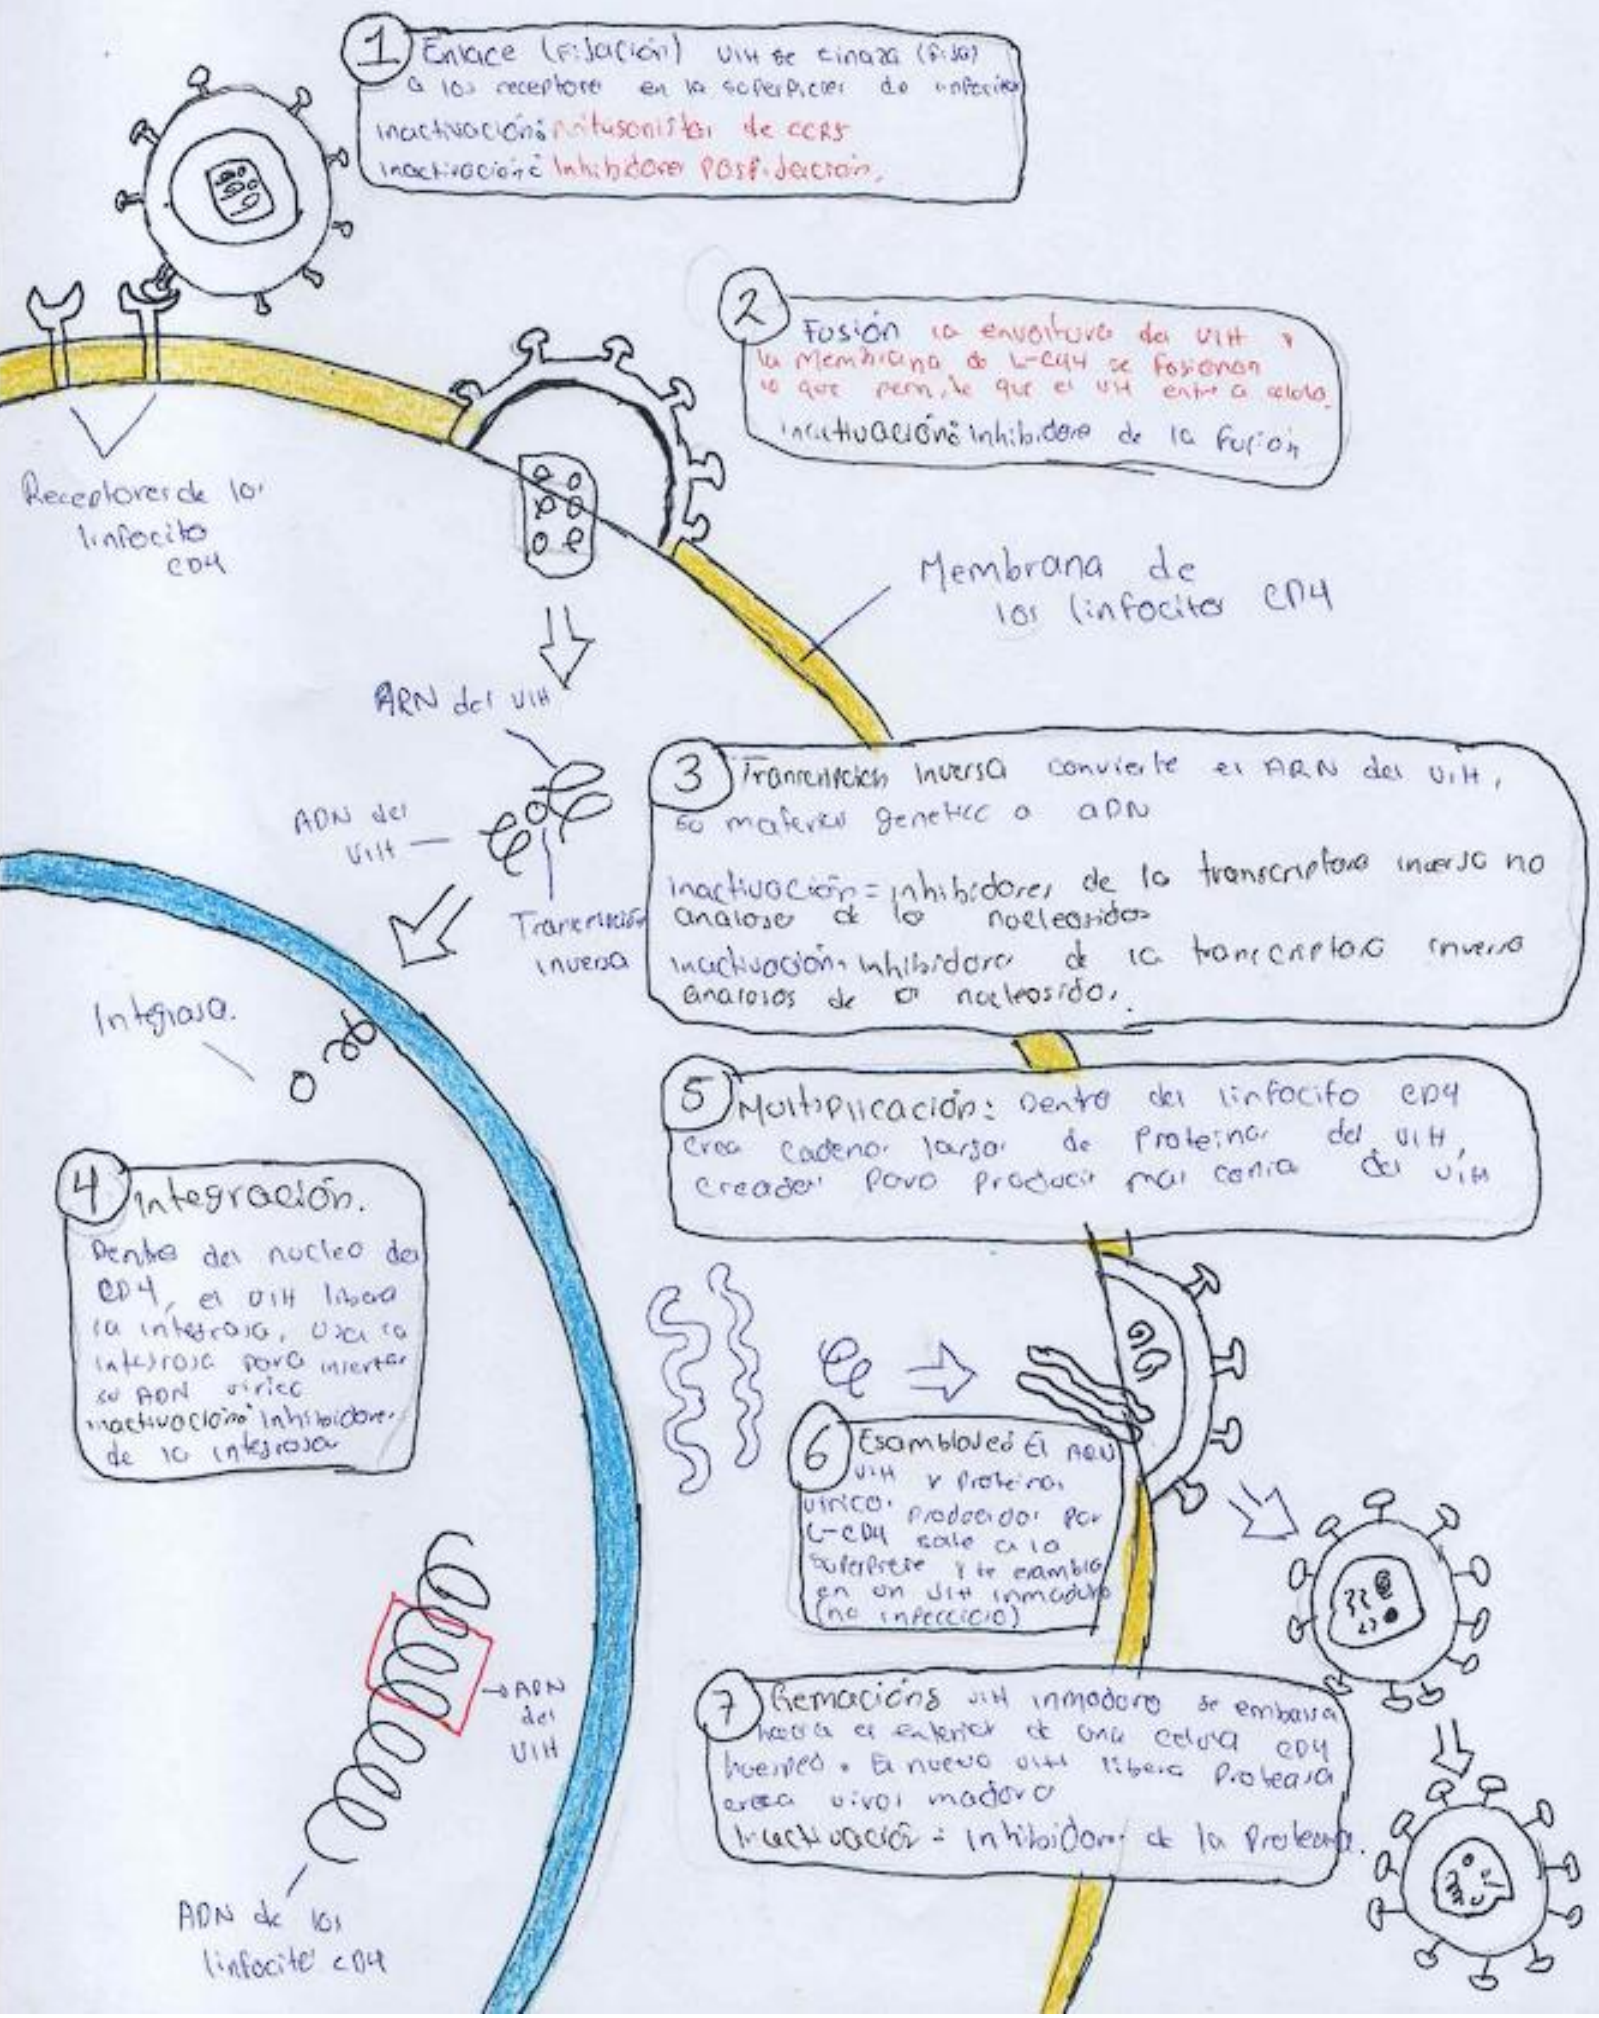 1 Enlace (Fijación) VIH se einaza (Fija)
a los receptore en la superficier de linfocitos
inactivación: Antagonistas de CCR5
inactivación: Inhibidores Posfijación.
2 Fusión la envoltura del VIH y
la Membrana de L-CD4 se fosionan
lo que permite que el VIH entre a celula.
inactivación: inhibidore de la fusión
Receptores de los
linfocito
CD4
Membrana de
los linfocitos CD4
ARN del VIH
ADN del
VIH
Trancripción
inversa
3 Trancripcion inversa convierte el ARN del VIH,
su material genetico a aDN
inactivación = inhibidores de la transcriptasa inversa no
analogo de lo nocleosidos
inactivación = inhibidora de la trancriptasa inversa
analosos de nocleosido.
Integrasa.
5 Multiplicación: Dentro del linfocito CD4
crea cadenas largas de Proteinas del VIH,
creadas para producir mas del VIH
4 Integración.
Dentro del nucleo del
CD4, el VIH libera
la integrasa, usa la
integrasa para insertar
su ADN virico
inactivación: inhibidores
de la integrasa
6 El ARN
VIH y Proteinas
viricos producidos por
L-CD4 sale a la
y se
en un VIH inmaduro
(no infeccicio)
ADN
del
VIH
7 Gemación: VIH inmaduro se
hacia el exterior de una celula CD4
huesped. El nuevo VIH libera Proteasa
crea virus maduro
Inactivación = Inhibidores de la Proteasa.
ADN de los
linfocito CD4